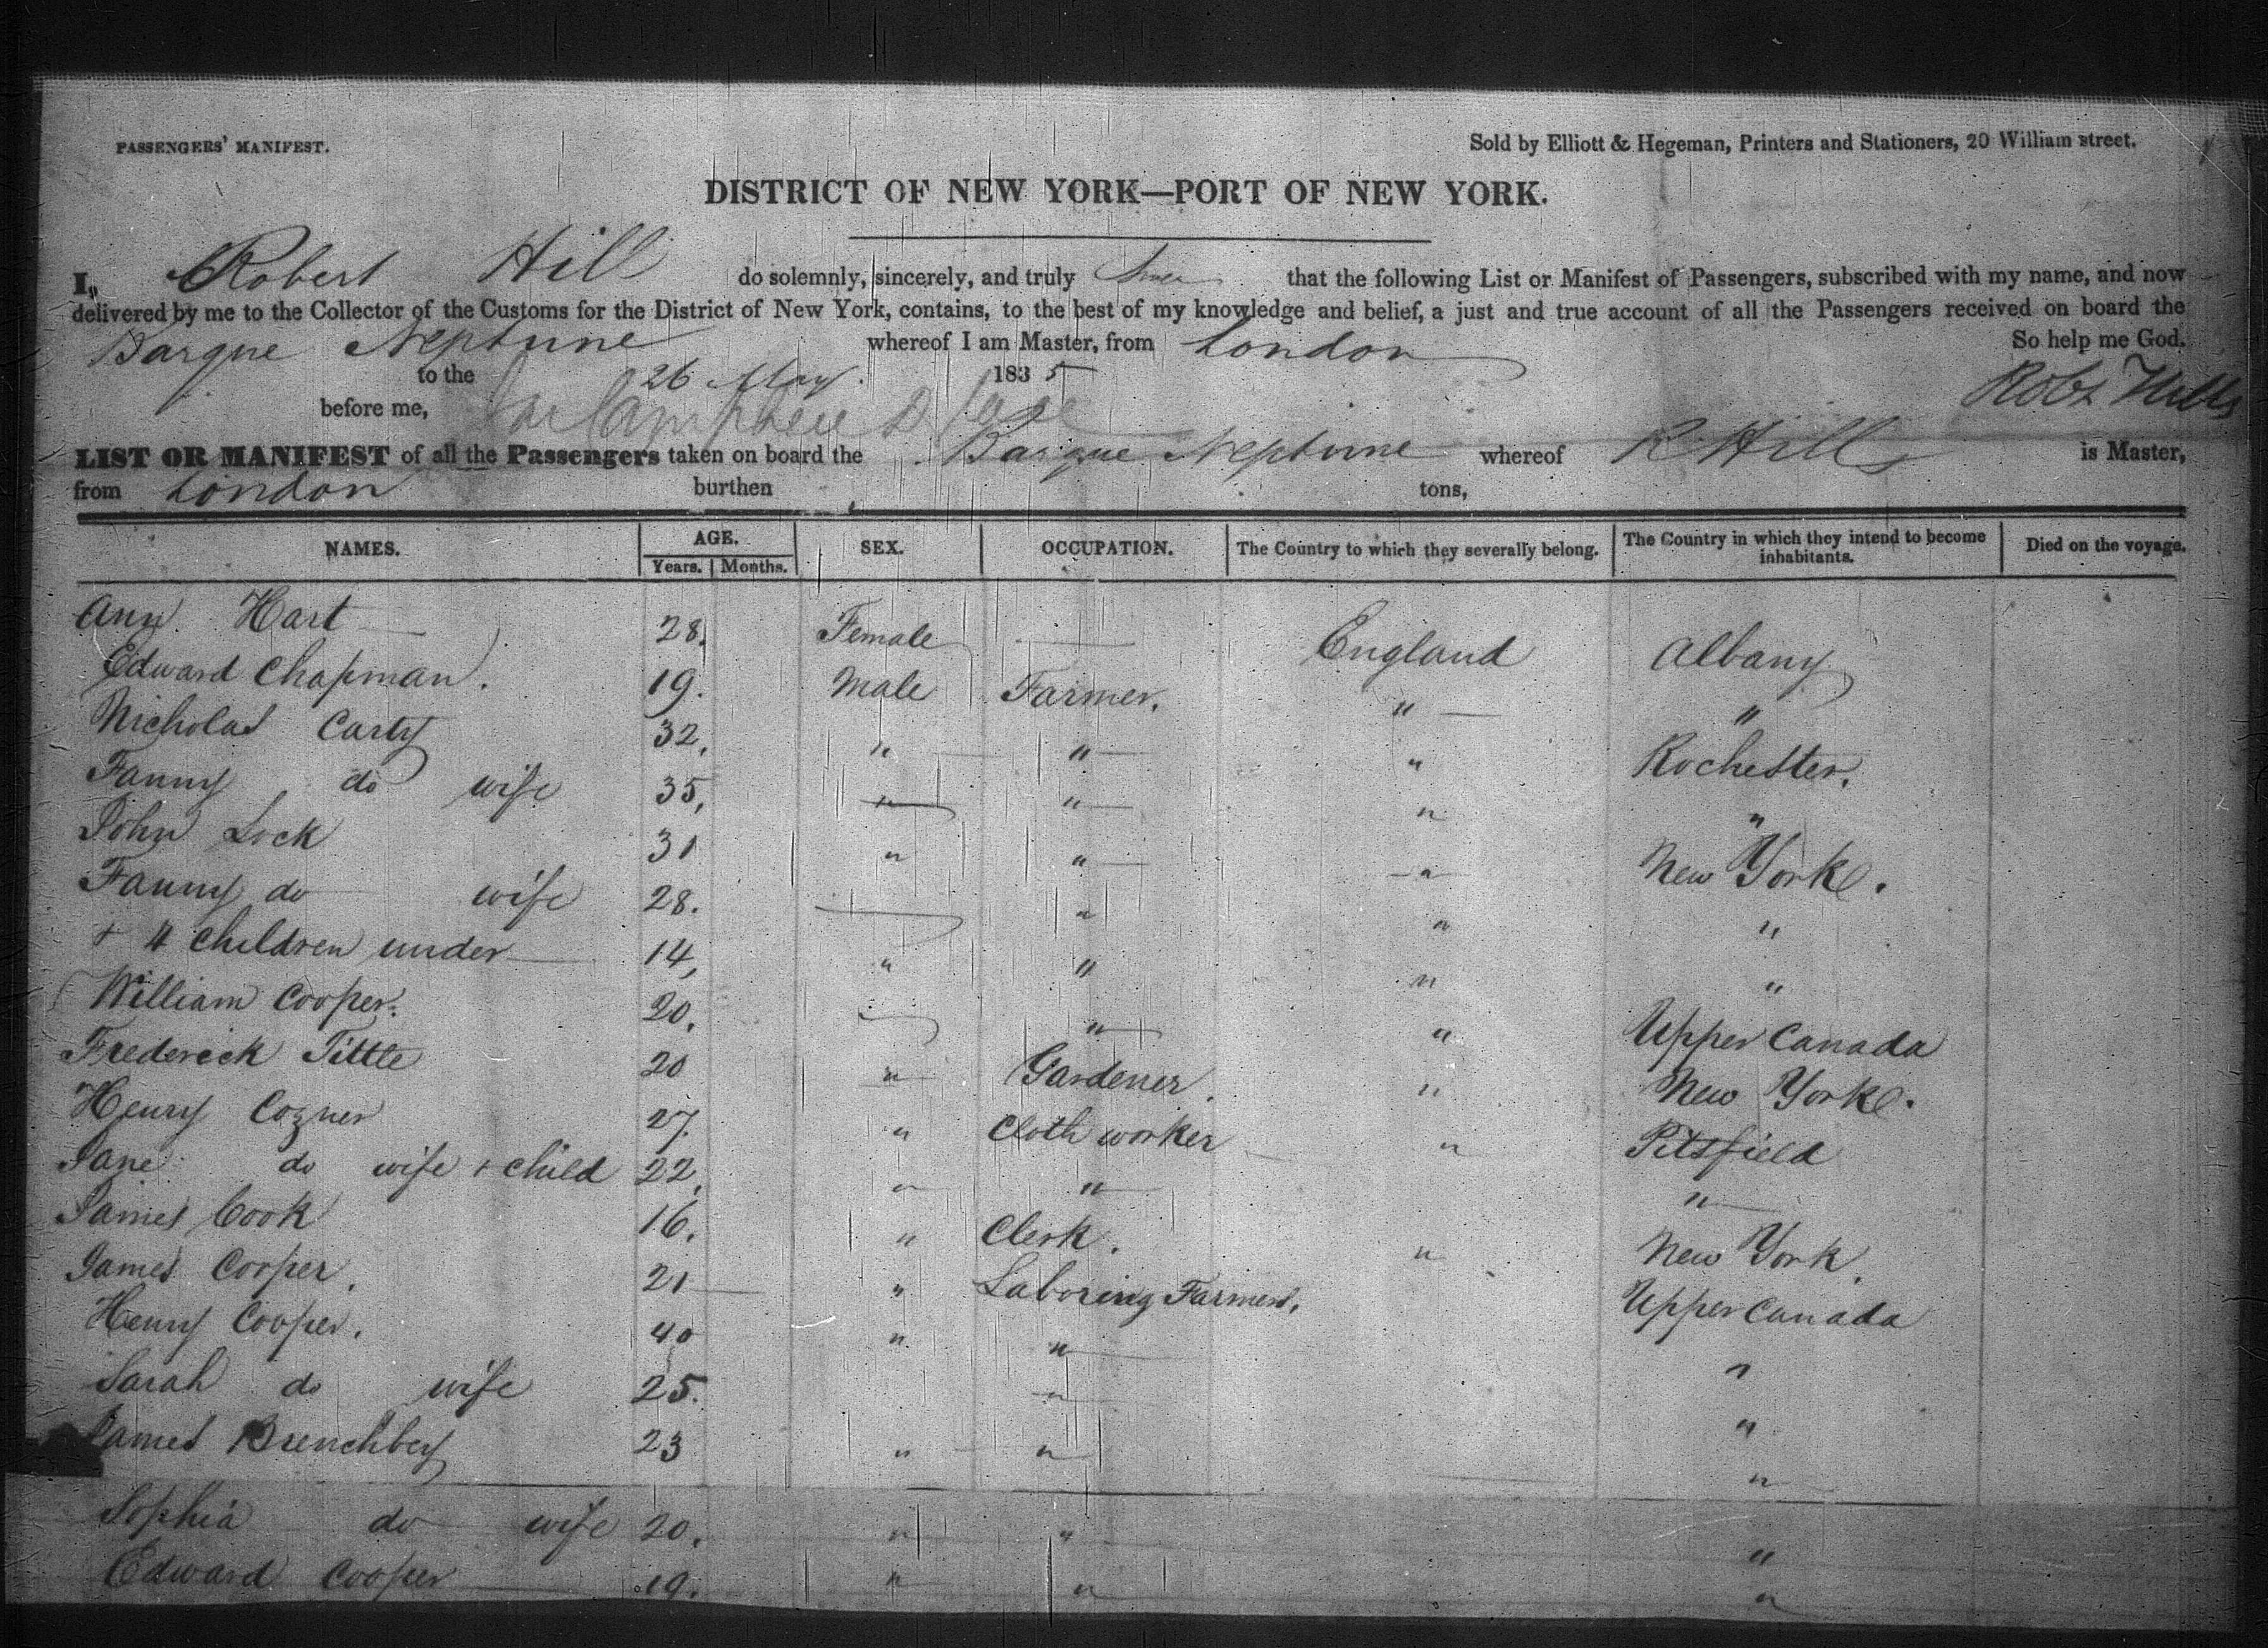 PASSENGERS' MANIFEST.
Sold by Elliott & Hegeman, Printers and Stationers, 20 William street.
DISTRICT OF NEW YORK—PORT OF NEW YORK.
I, Robert Hill do solemnly, sincerely, and truly that the following List or Manifest of Passengers, subscribed with my name, and now
delivered by me to the Collector of the Customs for the District of New York, contains, to the best of my knowledge and belief, a just and true account of all the Passengers received on board the
Barque Neptune whereof I am Master, from London So help me God.
to the 26 May. 1835
before me, Robt Hill
LIST OR MANIFEST of all the Passengers taken on board the Barque Neptune whereof R Hill is Master,
from London burthen tons,
NAMES. AGE. Years. Months. SEX. OCCUPATION. The Country to which they severally belong. The Country in which they intend to become inhabitants. Died on the voyage.
Ann Hart 28. Female — England Albany
Edward Chapman. 19. Male Farmer. " "
Nicholas Carty 32. " " " Rochester.
Fanny do wife 35, " " " "
John Lock 31 " " " New York.
Fanny do wife 28. " " "
+ 4 children under 14, " " " "
William Cooper. 20. " " Upper Canada
Frederick Tittle 20 " Gardener. " New York.
Henry Cozner 27. " Cloth worker " Pittsfield
Jane do wife + child 22. " " "
James Cook 16. " Clerk. " New York.
James Cooper. 21 " Laboring Farmers. Upper Canada
Henry Cooper. 40 " " "
Sarah do wife 25. " "
James Brenchbey 23 " " "
Sophia do wife 20. " " "
Edward Cooper 19. " " "